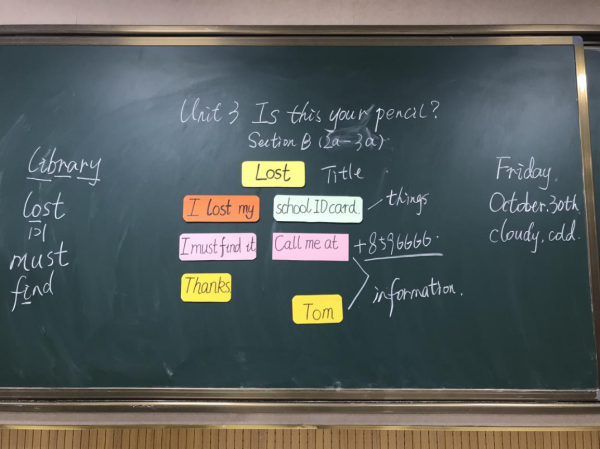 Unit 3 Is this your pencil?
Section B (2a-3a)
Lost Title
I lost my school ID card. things
I must find it Call me at +8596666.
Thanks.
Tom information.
Library
lost
must
find
Friday.
October.30th
cloudy.cold.